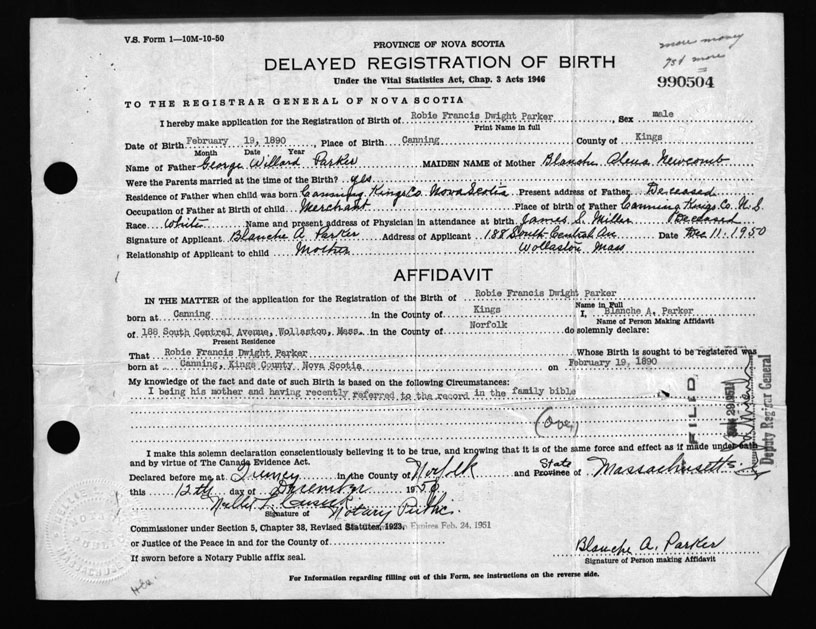 V.S. Form 1—10M-10-50
PROVINCE OF NOVA SCOTIA
more money
75¢ more
DELAYED REGISTRATION OF BIRTH
Under the Vital Statistics Act, Chap. 3 Acts 1946
990504
TO THE REGISTRAR GENERAL OF NOVA SCOTIA
I hereby make application for the Registration of Birth of Robie Francis Dwight Parker, Sex male
Print Name in full
Date of Birth February 19, 1890, Place of Birth Canning County of Kings
Month Date Year
Name of Father George Willard Parker MAIDEN NAME of Mother Blanche Newcomb
Were the Parents married at the time of the Birth? yes
Residence of Father when child was born Canning Kings Co. Nova Scotia Present address of Father Deceased
Occupation of Father at Birth of child Merchant Place of birth of Father Canning Kings Co. N. S.
Race White Name and present address of Physician in attendance at birth James S. Miller Deceased
Signature of Applicant Blanche A Parker Address of Applicant 188 South Central Ave Date Dec 11-1950
Relationship of Applicant to child Mother Wollaston, Mass
AFFIDAVIT
IN THE MATTER of the application for the Registration of the Birth of Robie Francis Dwight Parker
Name in Full
born at Canning in the County of Kings I, Blanche A. Parker
Name of Person Making Affidavit
of 188 South Central Avenue, Wollaston, Mass. in the County of Norfolk do solemnly declare:
Present Residence
That Robie Francis Dwight Parker Whose Birth is sought to be registered was
born at Canning, Kings County Nova Scotia on February 19, 1890
My knowledge of the fact and date of such Birth is based on the following Circumstances:
I being his mother and having recently referred to the record in the family bible
(Over)
FILED
JAN 29 1951
Deputy Registrar General
I make this solemn declaration conscientiously believing it to be true, and knowing that it is of the same force and effect as if made under oath
and by virtue of The Canada Evidence Act.
Declared before me at Quincy in the County of Norfolk and State Province of Massachusetts
this 12th day of December 1950
Signature of Notary Public
Commissioner under Section 5, Chapter 38, Revised Statutes, 1923. Expires Feb. 24, 1951
or Justice of the Peace in and for the County of
If sworn before a Notary Public affix seal.
Blanche A. Parker
Signature of Person making Affidavit
For Information regarding filling out of this Form, see instructions on the reverse side.